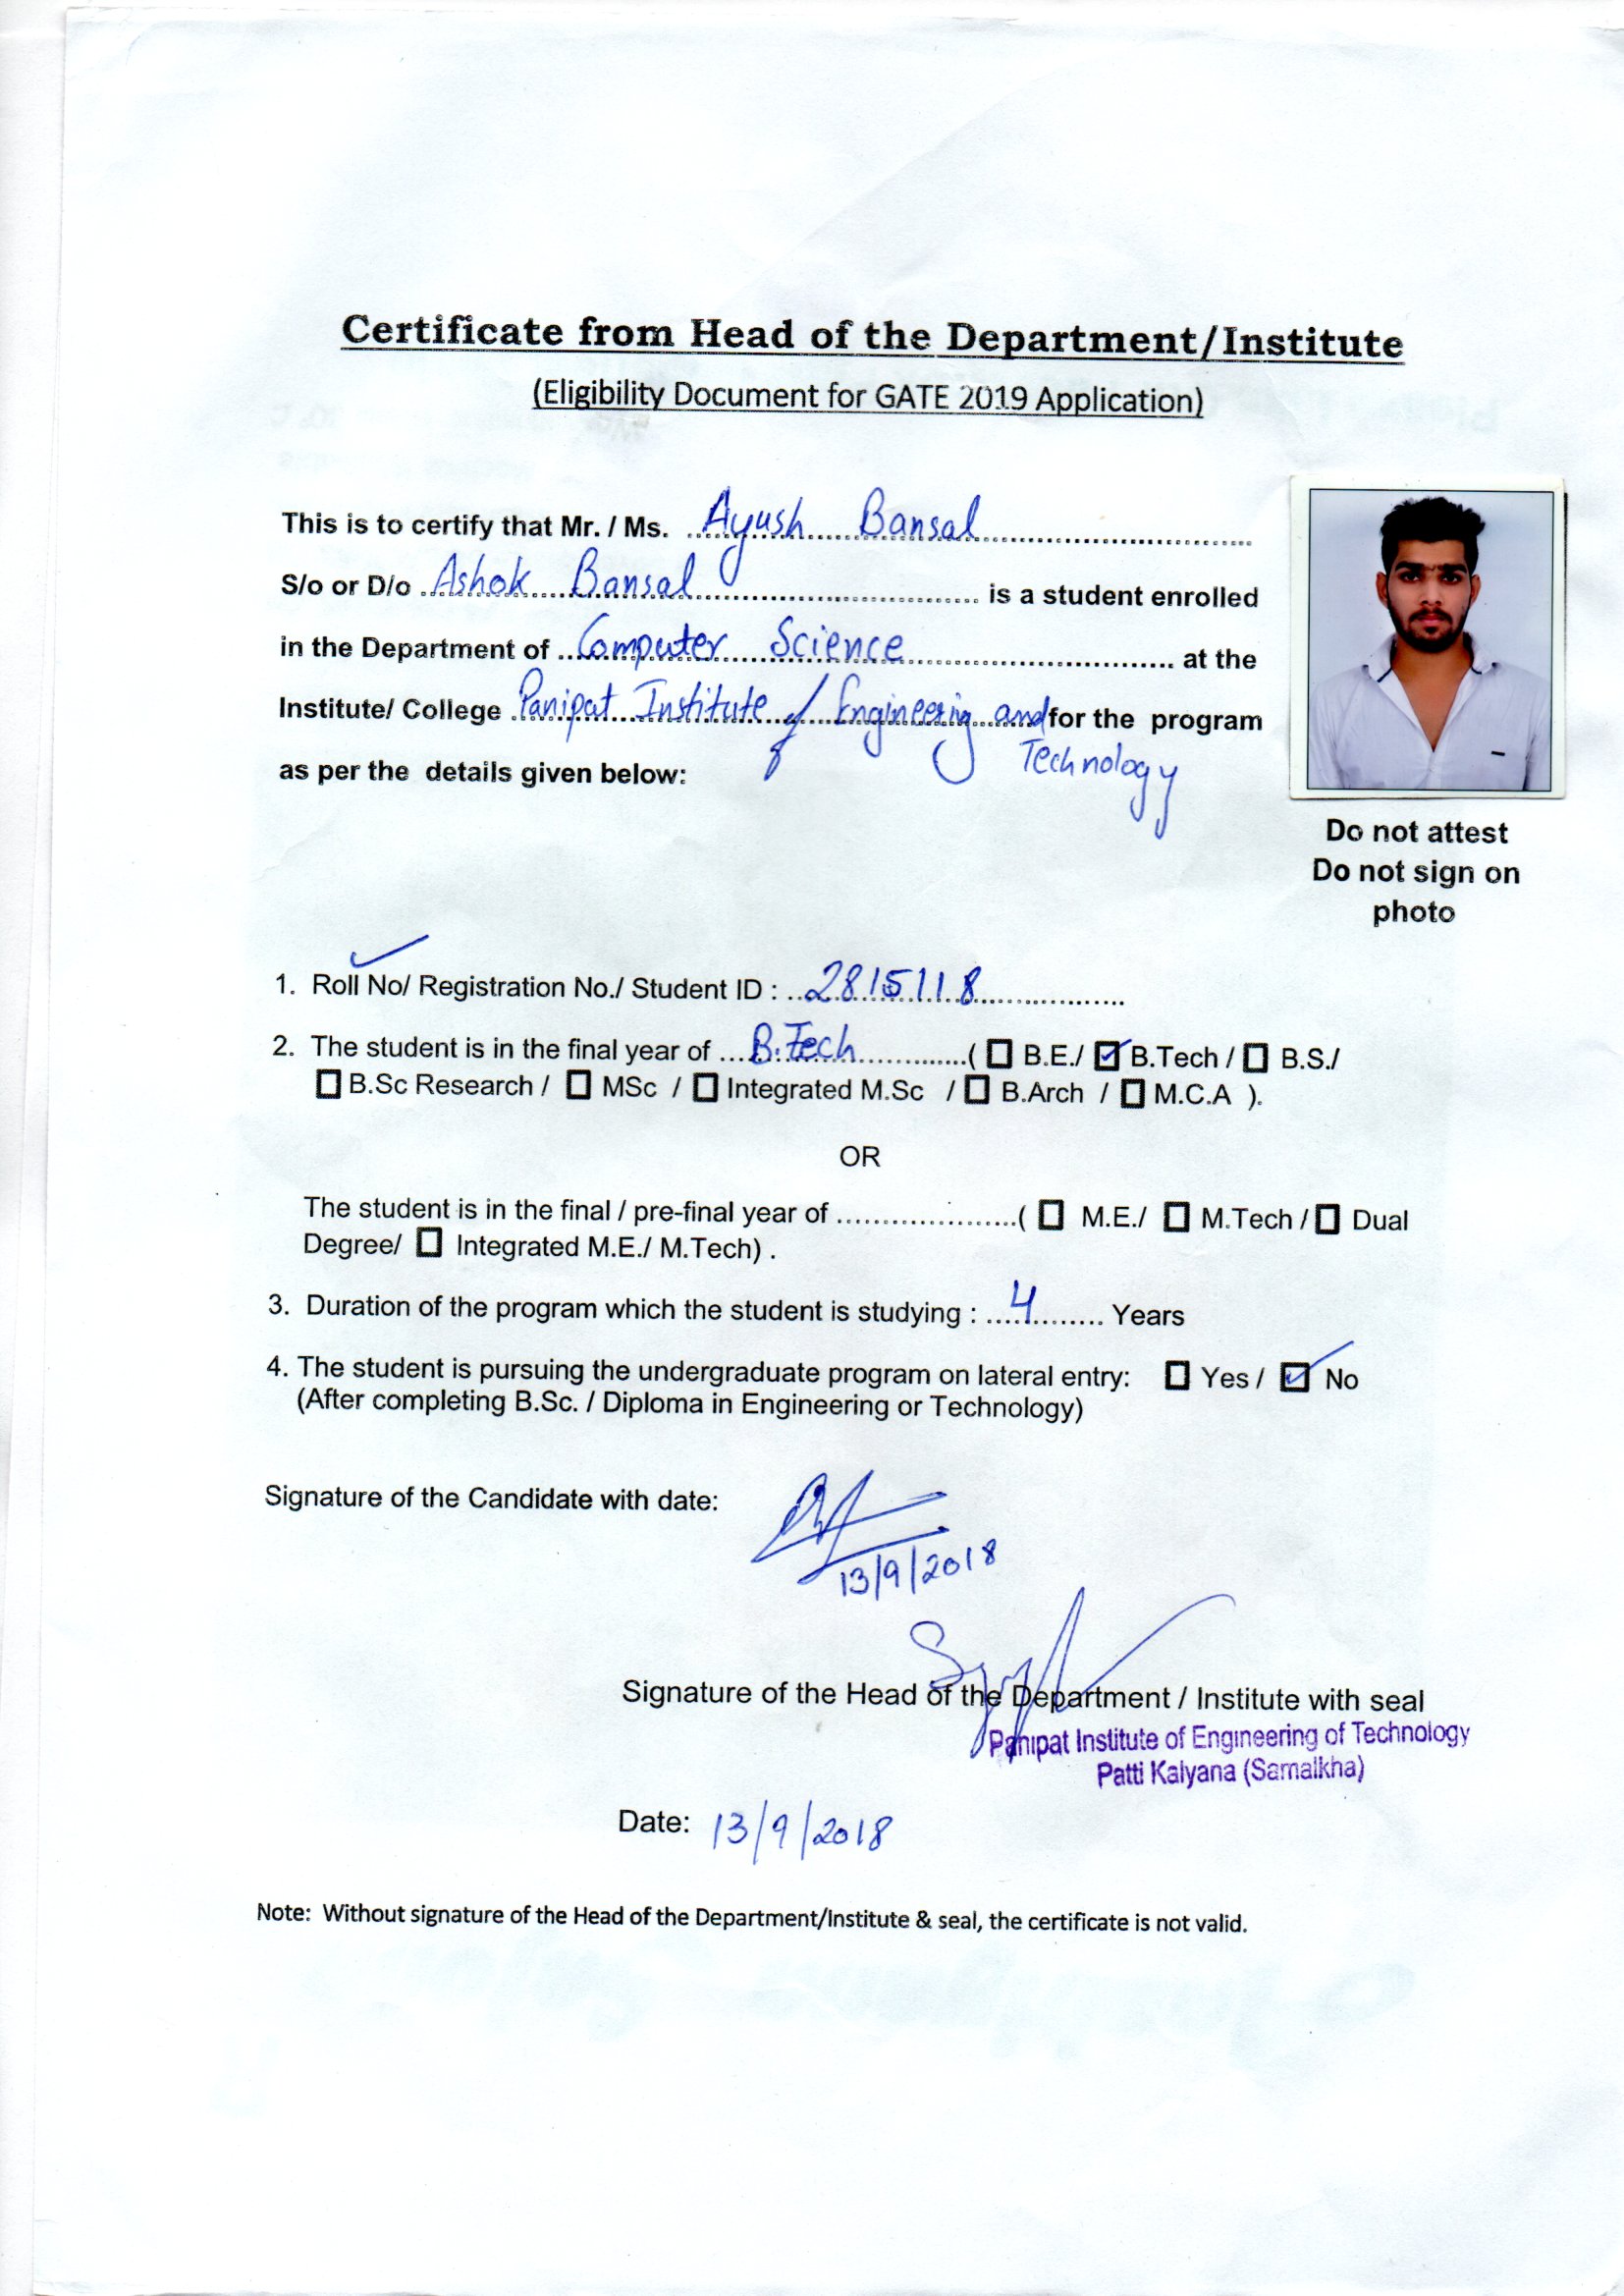 Certificate from Head of the Department/Institute
(Eligibility Document for GATE 2019 Application)
This is to certify that Mr. / Ms. Ayush Bansal
S/o or D/o Ashok Bansal is a student enrolled
in the Department of Computer Science at the
Institute/ College Panipat Institute of Engineering and for the program
Technology
as per the details given below:
Do not attest
Do not sign on
photo
1. Roll No/ Registration No./ Student ID : 2815118
2. The student is in the final year of B.Tech ( ☐ B.E./ ☑ B.Tech / ☐ B.S./
☐ B.Sc Research / ☐ MSc / ☐ Integrated M.Sc / ☐ B.Arch / ☐ M.C.A ).
OR
The student is in the final / pre-final year of ....................( ☐ M.E./ ☐ M.Tech / ☐ Dual
Degree/ ☐ Integrated M.E./ M.Tech) .
3. Duration of the program which the student is studying : 4 Years
4. The student is pursuing the undergraduate program on lateral entry: ☐ Yes / ☑ No
(After completing B.Sc. / Diploma in Engineering or Technology)
Signature of the Candidate with date:
13/9/2018
Signature of the Head of the Department / Institute with seal
Panipat Institute of Engineering of Technology
Patti Kalyana (Samalkha)
Date: 13/9/2018
Note: Without signature of the Head of the Department/Institute & seal, the certificate is not valid.